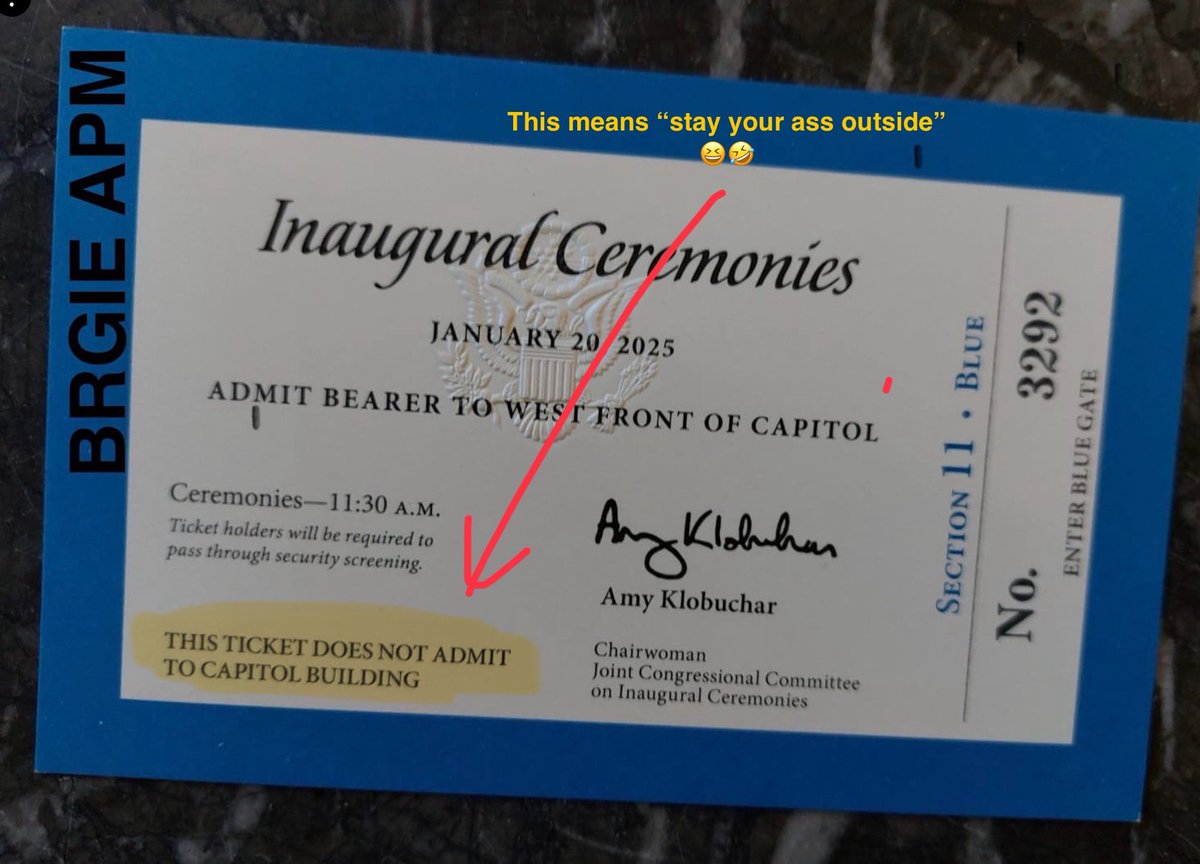 BRGIE APM
This means “stay your ass outside”
😆🤣
Inaugural Ceremonies
JANUARY 20, 2025
ADMIT BEARER TO WEST FRONT OF CAPITOL
Ceremonies—11:30 A.M.
Ticket holders will be required to
pass through security screening.
THIS TICKET DOES NOT ADMIT
TO CAPITOL BUILDING
Amy Klobuchar
Amy Klobuchar
Chairwoman
Joint Congressional Committee
on Inaugural Ceremonies
SECTION 11 • BLUE
No. 3292
ENTER BLUE GATE